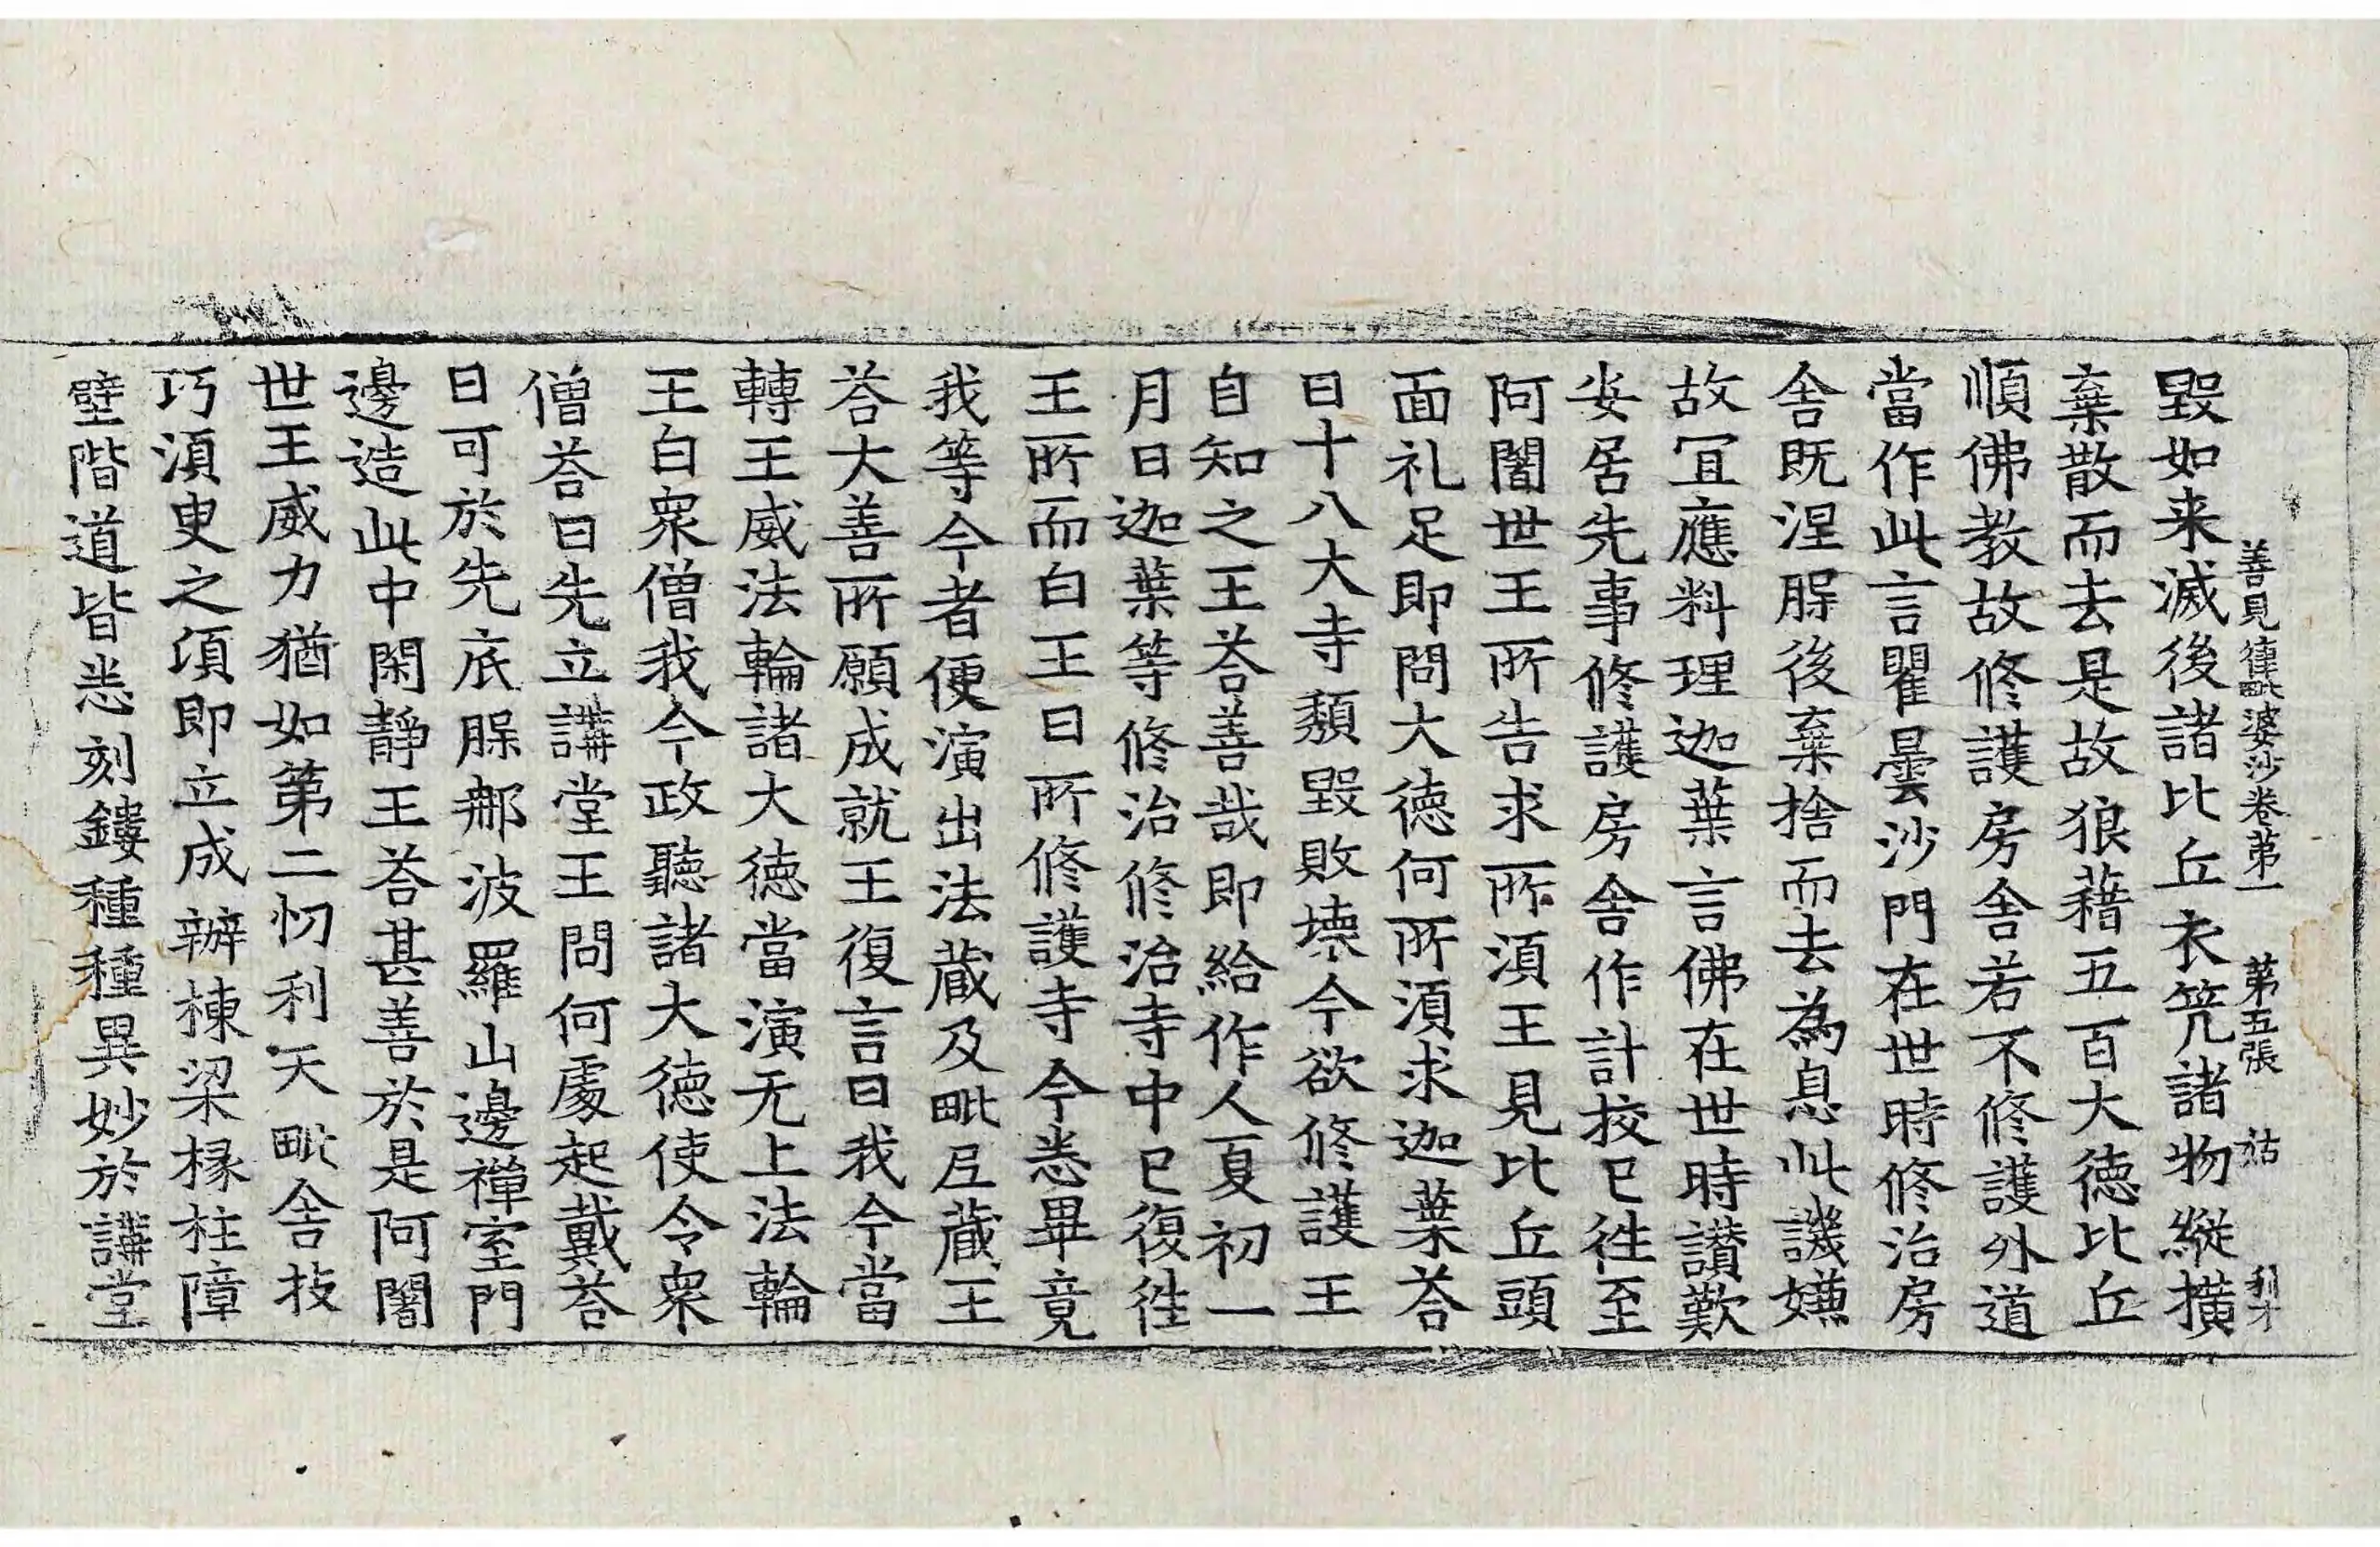 善見律毗婆沙卷第一　第五張　祐　利才
毀如来滅後諸比丘衣䇶諸物縱撗
棄散而去是故狼藉五百大德比丘
順佛教故修護房舍若不修護外道
當作此言瞿曇沙門在世時修治房
舍既涅腂後棄捨而去為息此譏嫌
故冝應料理迦葉言佛在世時讃歎
安居先事修護房舍作計挍已徃至
阿闍世王所告求所湏王見比丘頭
面礼足即問大德何所湏求迦葉荅
曰十八大寺頽毀敗壞今欲修護王
自知之王荅善哉即給作人夏初一
月日迦葉等修治修治寺中已復徃
王所而白王曰所修護寺今悉畢竟
我等今者便演出法蔵及毗尼蔵王
荅大善所願成就王復言曰我今當
轉王威法輪諸大德當演无上法輪
王白衆僧我今政聽諸大德使令衆
僧荅曰先立講堂王問何處起戴荅
曰可於先底腂郍波羅山邊禪室門
邊造此中閑靜王荅甚善於是阿闍
世王威力猶如第二忉利天毗舍技
巧湏臾之頃即立成辦棟梁椽柱障
壁階道皆悉刻鏤種種異妙於講堂